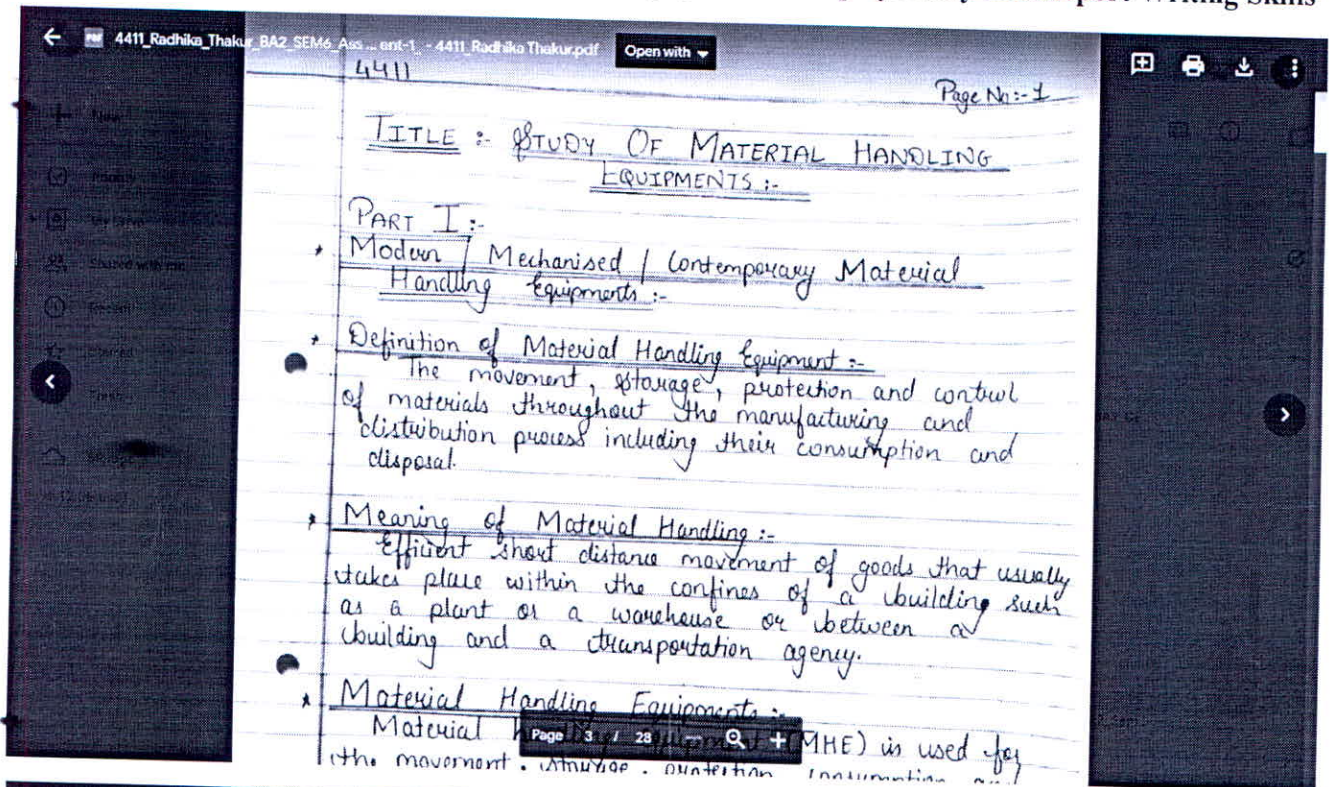 Writing Skills
4411_Radhika_Thakur_BA2_SEM6_Ass... ent-1_ - 4411_Radhika Thakur.pdf
Open with
4411
Page No:- 1
TITLE :- STUDY OF MATERIAL HANDLING
EQUIPMENTS :-
PART I :-
* Modern / Mechanised / Contemporary Material
Handling Equipments :-
* Definition of Material Handling Equipment :-
The movement, storage, protection and control
of materials throughout the manufacturing and
distribution process including their consumption and
disposal.
* Meaning of Material Handling :-
Efficient short distance movement of goods that usually
takes place within the confines of a building such
as a plant or a warehouse or between a
building and a transportation agency.
* Material Handling Equipments :-
Material (MHE) is used for
Page 3 / 28
the movement, storage, protection, consumption and
New
Shared with me